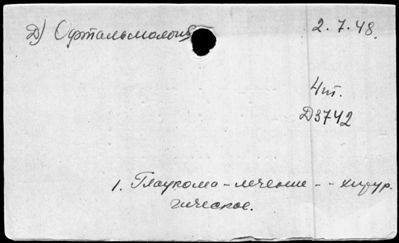 Д) Офтальмология
2.7.48.
4т.
D3742
1. Глаукома - лечение - - хирур.
гическое.